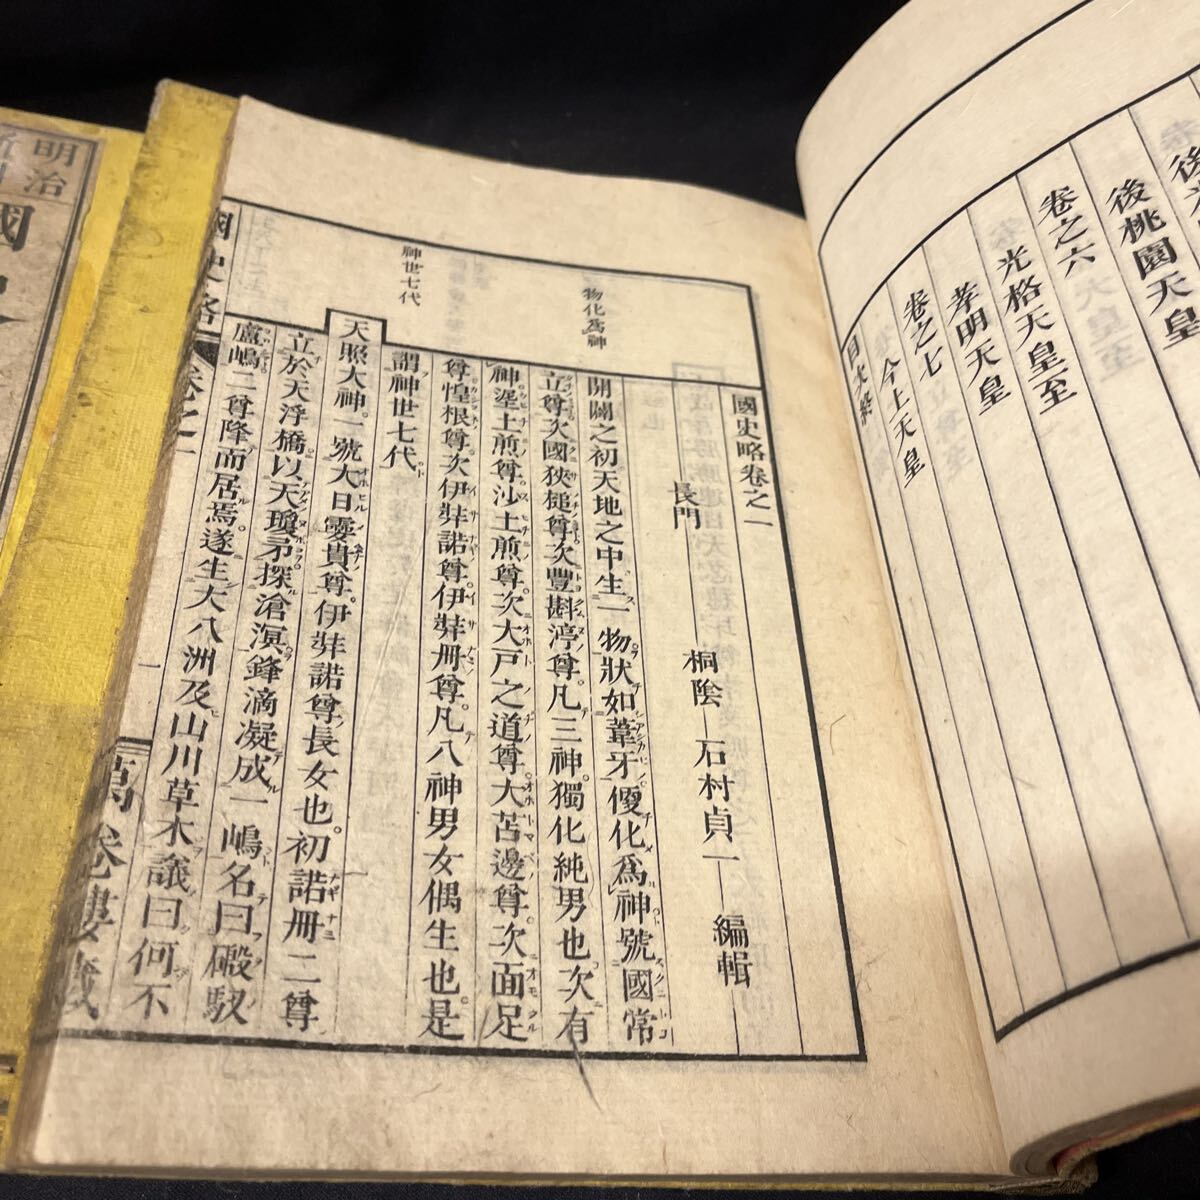 後桃園天皇
卷之六
光格天皇至
孝明天皇
卷之七
今上天皇
目次終
國史略卷之一
長門 桐陰 石村貞一 編輯
物化爲神
開闢之初天地之中生一物狀如葦牙便化爲神號國常
立尊次國狹槌尊次豐斟渟尊凡三神獨化純男也次有
神埿土煑尊沙土煑尊次大戸之道尊大苫邊尊次面足
尊惶根尊次伊弉諾尊伊弉冊尊凡八神男女偶生也是
謂神世七代
神世七代
天照大神一號大日孁貴尊伊弉諾尊長女也初諾冊二尊
立於天浮橋以天瓊矛探滄溟鋒滴凝成一嶋名曰磤馭
盧嶋二尊降而居焉遂生大八洲及山川草木議曰何不
國史略 卷之一 一 萬卷樓藏
明治
國